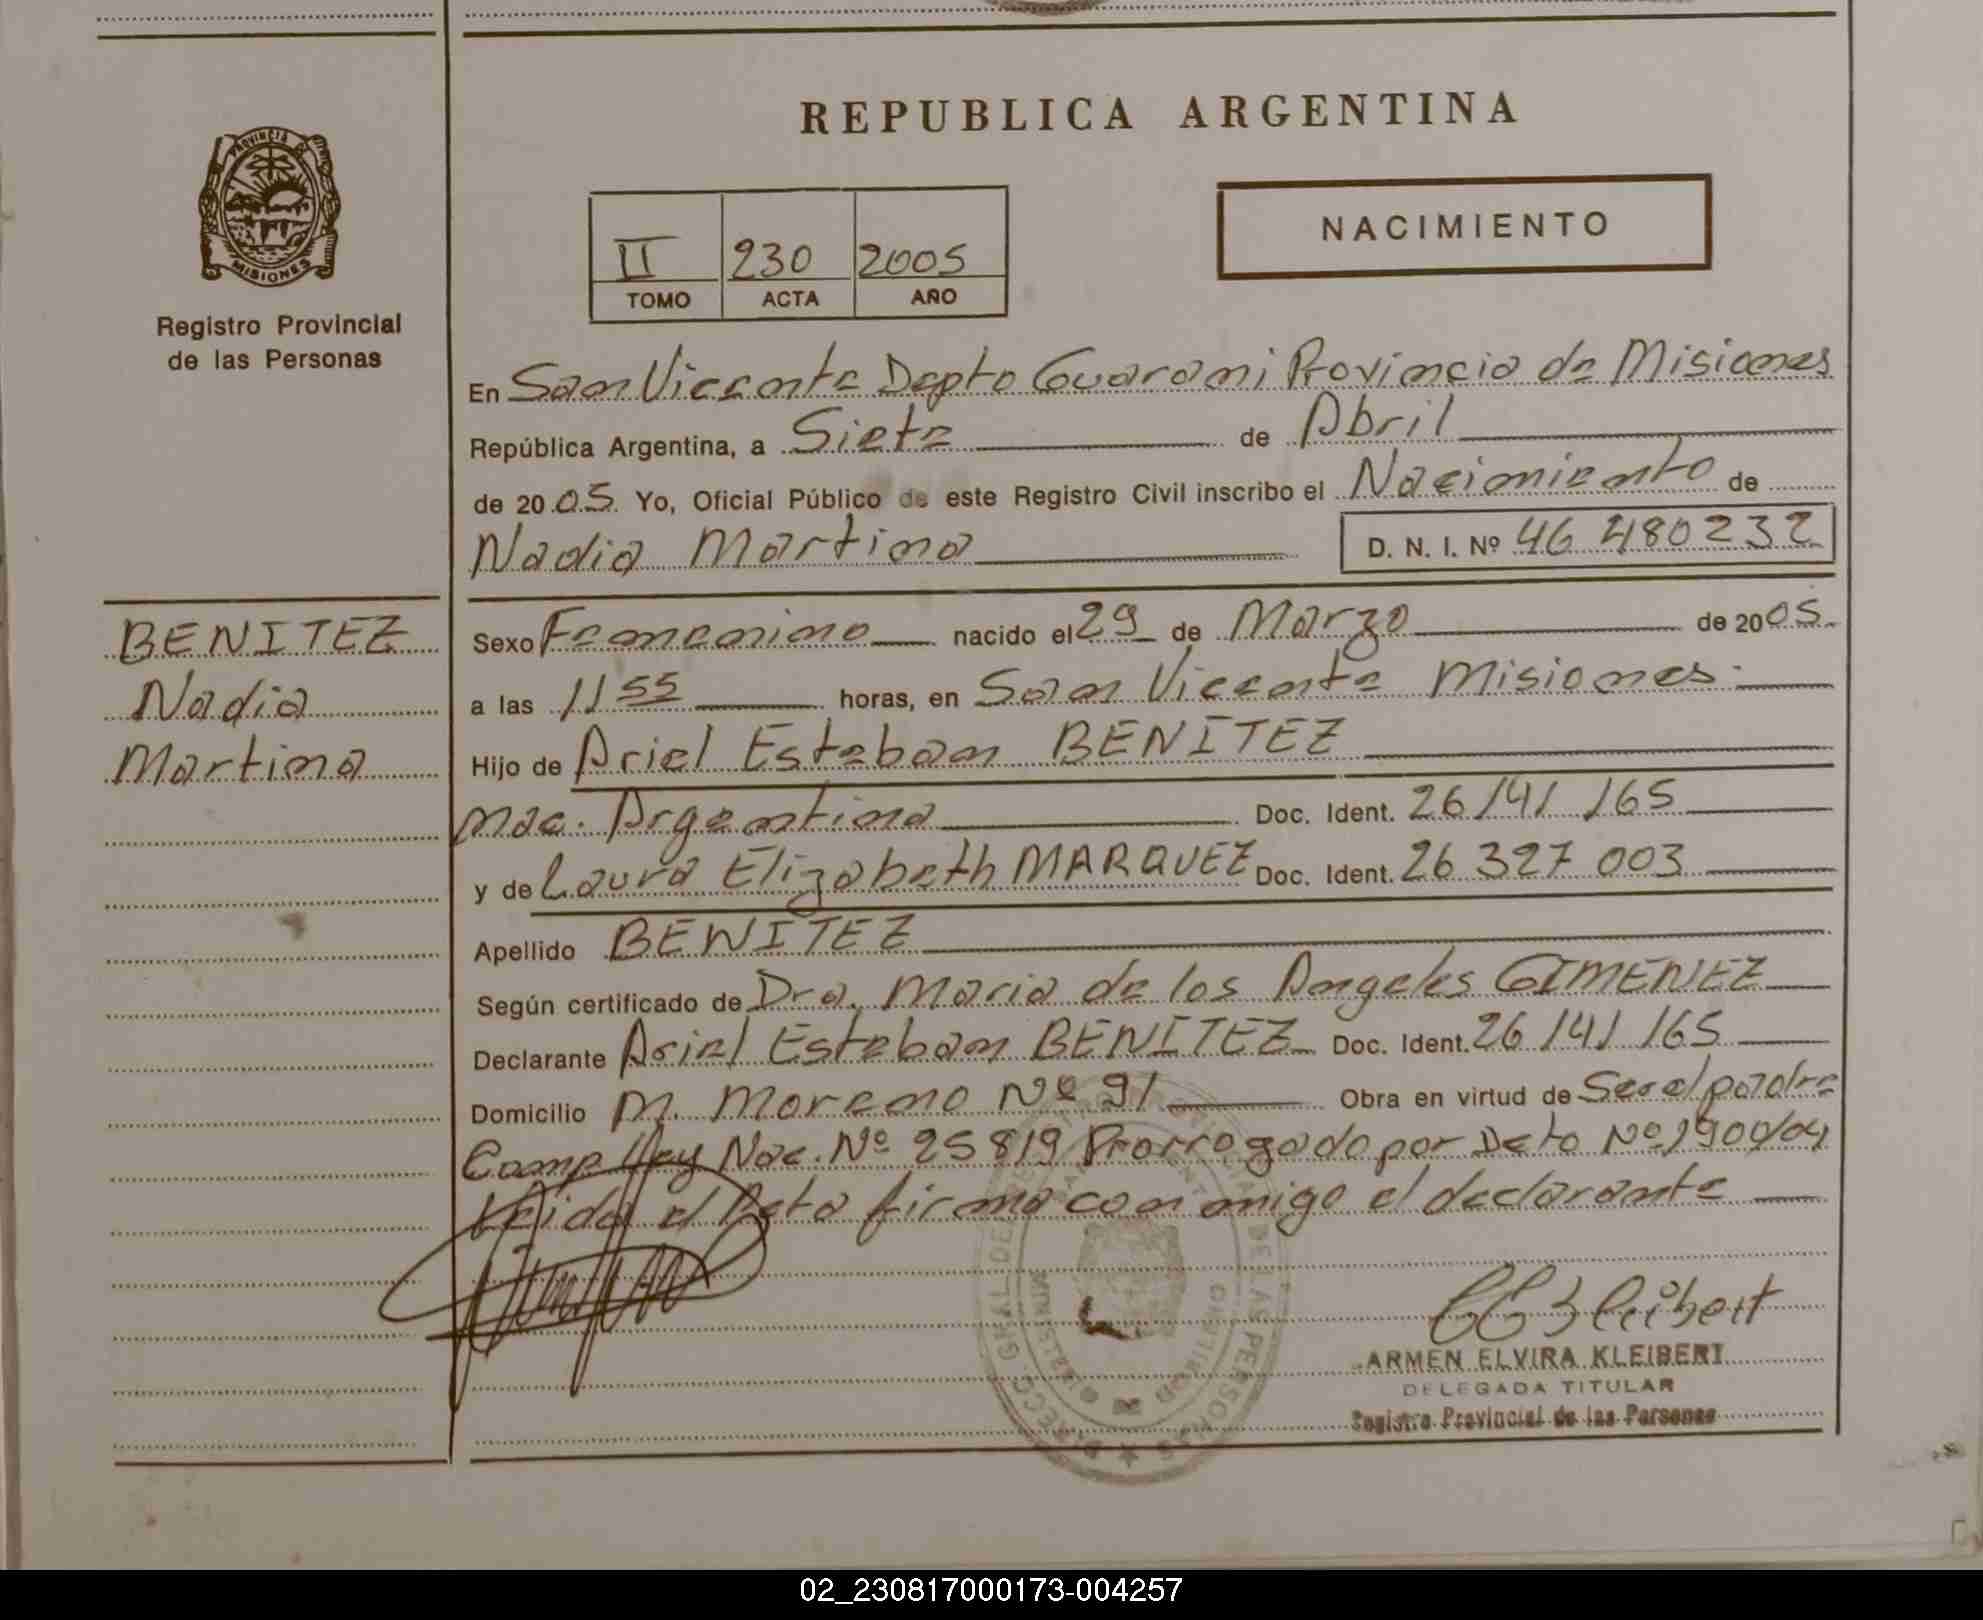 REPUBLICA ARGENTINA
PROVINCIA DE
MISIONES
Registro Provincial
de las Personas
II 230 2005
TOMO ACTA AÑO
NACIMIENTO
En San Vicente Depto Guarani Provincia de Misiones
República Argentina, a Siete de Abril
de 2005 Yo, Oficial Público de este Registro Civil inscribo el Nacimiento de
Nadia Martina D. N. I. Nº 46 480232
BENITEZ
Nadia
Martina
Sexo Femenino nacido el 29 de Marzo de 2005
a las 11 55 horas, en San Vicente Misiones
Hijo de Ariel Esteban BENITEZ
nac. Argentina Doc. Ident. 26 141 165
y de Laura Elizabeth MARQUEZ Doc. Ident. 26 327 003
Apellido BENITEZ
Según certificado de Dra. Maria de los Angeles GIMENEZ
Declarante Ariel Esteban BENITEZ Doc. Ident. 26 141 165
Domicilio M. Moreno Nº 91 Obra en virtud de Ser el padre
Comp. Ley Nac. Nº 25819 Prorrogado por Dcto Nº 1900/04
Leida el Acta firma conmigo el declarante
ARMEN ELVIRA KLEIBERT
DELEGADA TITULAR
Registro Provincial de las Personas
02_230817000173-004257